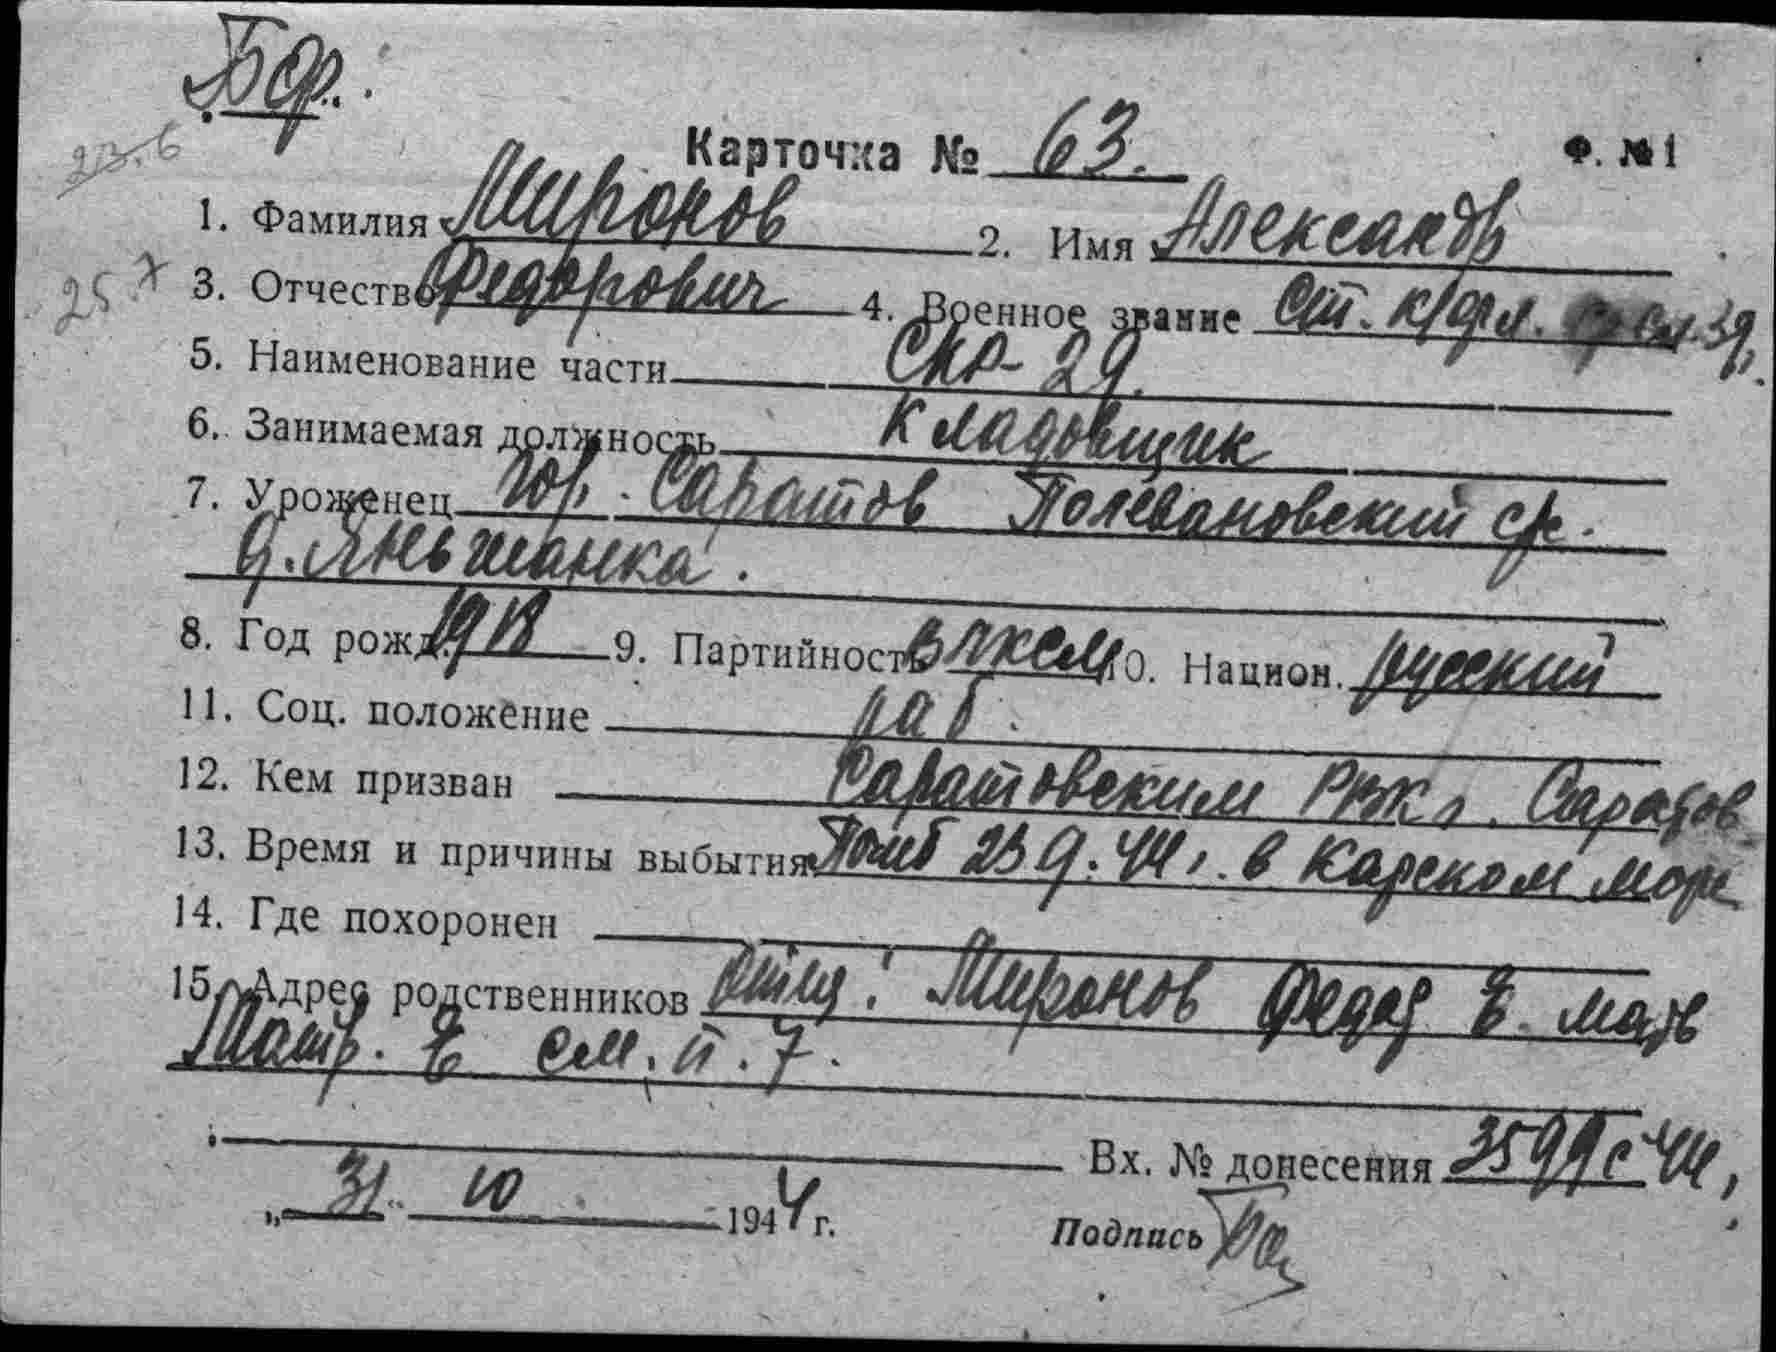 БФ.
23.6
Карточка № 63. Ф. №1
1. Фамилия Миронов 2. Имя Александр
25.X 3. Отчество Федорович 4. Военное звание Ст. к/фл.
5. Наименование части СКР-29.
6. Занимаемая должность кладовщик
7. Уроженец гор. Саратов Поливановский с/с.
д. Яньшанка.
8. Год рожд. 1918 9. Партийность ВЛКСМ 10. Национ. русский
11. Соц. положение раб.
12. Кем призван Саратовским РВК г. Саратов
13. Время и причины выбытия Погиб 23 9.44 г. в Карском море
14. Где похоронен
15. Адрес родственников отец: Миронов Федор Е. мать
Матр. Е см. п. 7.
Вх. № донесения 3599с 44г.
„31" 10 1944 г. Подпись